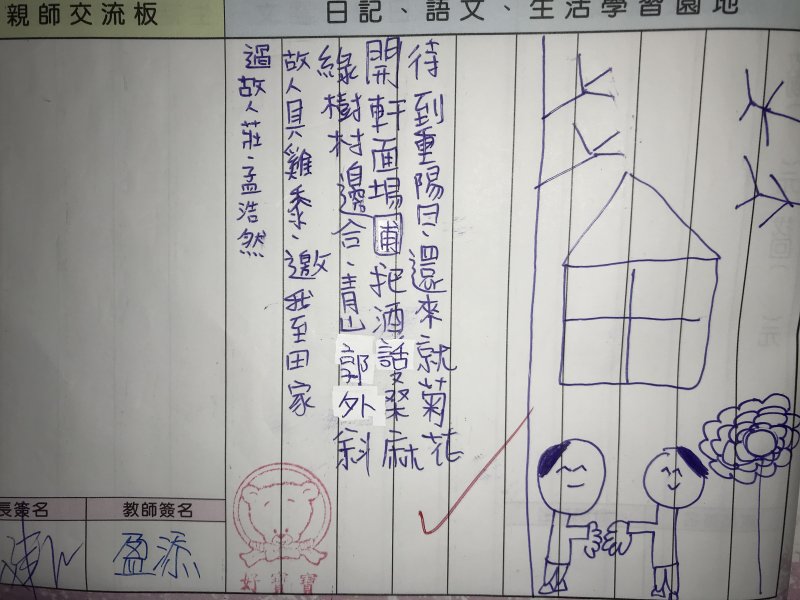 親師交流板
日記、語文、生活學習園地
過故人莊.孟浩然
故人具雞黍.邀我至田家
綠樹村邊合.青山郭外斜
開軒面場圃把酒話桑麻
待到重陽日.還來就菊花
長簽名
教師簽名
盈添
好寶寶